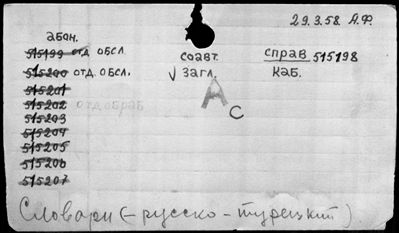 29.3.58. А.Ф.
абон.
515199 отд обсл.
соавт.
справ 515198
515200 отд. обсл.
√ загл.
каб.
515201
А
515202 отд обраб
С
515203
515204
515205
515206
515207
Словари (-русско-турецкий).